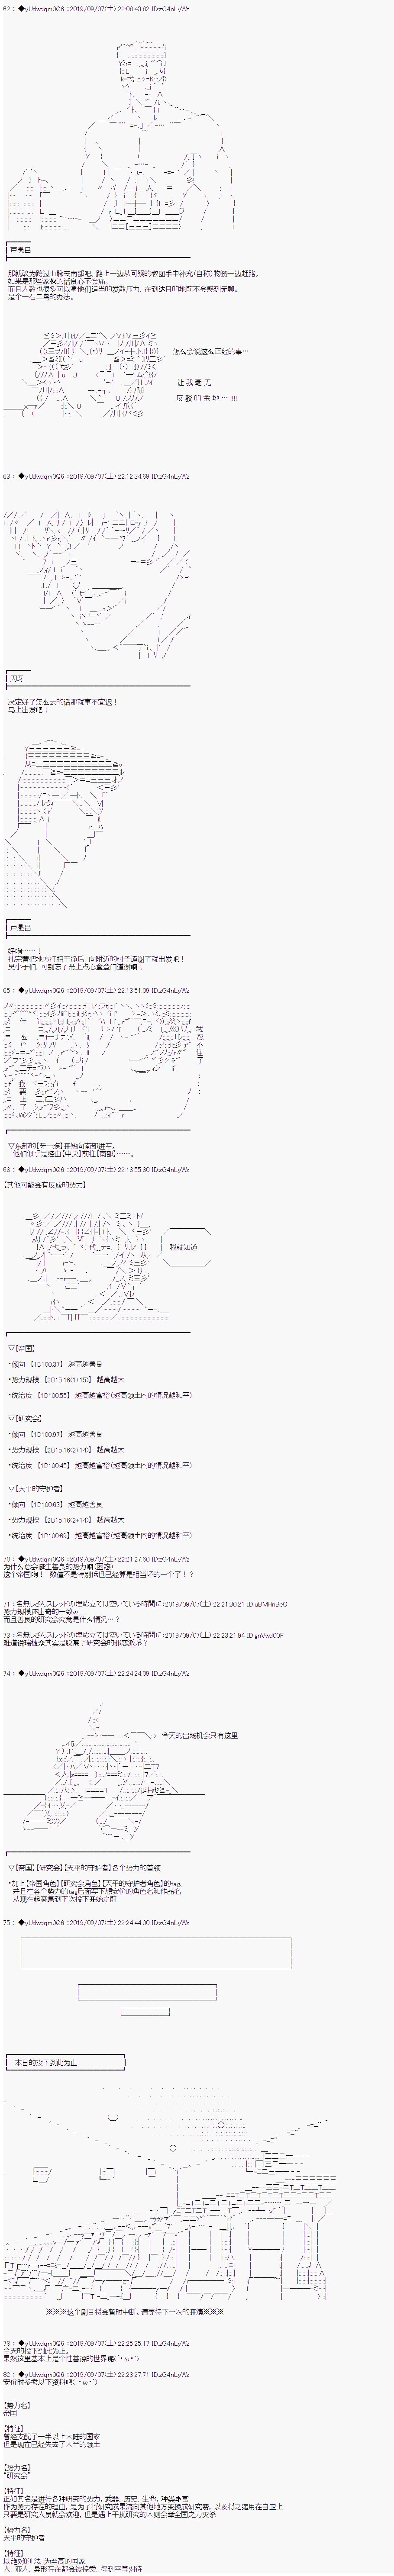 62 : ◆yUdwdqm0Q6 :2019/09/07(土) 22:08:43.82 ID:zG4nLyWz
戸愚吕
那就改为跨过山脉去南部吧，路上一边从可疑的教团手中补充(自称)物资一边赶路。
如果是那些家伙的话良心不会痛。
而且人数也很多可以拿他们适当的发散压力，在到达目的地前不会感到无聊。
是个一石二鸟的办法。
怎么会说这么正经的事…
让我毫无
反驳的余地…!!!!
63 : ◆yUdwdqm0Q6 :2019/09/07(土) 22:12:34.69 ID:zG4nLyWz
刃牙
决定好了怎么去的话那就事不宜迟！
马上出发吧！
戸愚吕
好啊……！
扎完营把地方打扫干净后，向附近的村子道谢了就出发吧！
臭小子们，可别忘了带上点心盒登门道谢啊！
65 : ◆yUdwdqm0Q6 :2019/09/07(土) 22:13:51.09 ID:zG4nLyWz
我忍不住了：：
什么！？我要上了
▽东部的【牙一族】开始向南部进军。
他们似乎是经由【中央】前往【南部】……。
68 : ◆yUdwdqm0Q6 :2019/09/07(土) 22:18:55.80 ID:zG4nLyWz
【其他可能会有反应的势力】
我就知道
▽【帝国】
・倾向 【1D100:37】 越高越善良
・势力规模 【2D15:16(1+15)】 越高越大
・统治度 【1D100:55】 越高越富裕(越高领土内的情况越和平)
▽【研究会】
・倾向 【1D100:97】 越高越善良
・势力规模 【2D15:16(2+14)】 越高越大
・统治度 【1D100:45】 越高越富裕(越高领土内的情况越和平)
▽【天平的守护者】
・倾向 【1D100:63】 越高越善良
・势力规模 【2D15:16(2+14)】 越高越大
・统治度 【1D100:69】 越高越富裕(越高领土内的情况越和平)
70 : ◆yUdwdqm0Q6 :2019/09/07(土) 22:21:27.60 ID:zG4nLyWz
为什么总会诞生善良的势力啊(困惑)
这个帝国啊！ 数值不是特别低但已经算是相当坏的一个了！？
71 : 名無しさんスレッドの埋め立ては空いている時間に :2019/09/07(土) 22:21:30.21 ID:uBMHnBeO
势力规模还出奇的一致w
而且善良的研究会究竟是什么情况…？
73 : 名無しさんスレッドの埋め立ては空いている時間に :2019/09/07(土) 22:23:21.94 ID:gnVwd00F
难道说瑞穗众其实是脱离了研究会的邪恶派系？
74 : ◆yUdwdqm0Q6 :2019/09/07(土) 22:24:24.09 ID:zG4nLyWz
今天的出场机会只有这里
▽【帝国】【研究会】【天平的守护者】各个势力的首领
・加上【帝国角色】【研究会角色】【天平的守护者角色】的tag，
并且在各个势力的tag后面写下想安价的角色名和作品名
从现在起募集到下次投下开始之前
75 : ◆yUdwdqm0Q6 :2019/09/07(土) 22:24:44.00 ID:zG4nLyWz
本日的投下到此为止
※※※这个剧目将会暂时中断。请等待下一次的开演※※※
78 : ◆yUdwdqm0Q6 :2019/09/07(土) 22:25:25.17 ID:zG4nLyWz
今天的投下到此为止。
果然这里基本上是个性善说的世界呢(´・ω・`)
82 : ◆yUdwdqm0Q6 :2019/09/07(土) 22:28:27.71 ID:zG4nLyWz
安价时参考以下资料吧(´・ω・`)
【势力名】
帝国
【特征】
曾经支配了一半以上大陆的国家
但是现在已经失去了大半的领土
【势力名】
“研究会”
【特征】
正如其名是进行各种研究的势力，武器、历史、生命，种类丰富
作为势力存在的理由，是为了将研究成果流向其他地方变换成研究费，以及将之运用在自卫上
只要是研究人员就会欢迎，但是遇上干扰研究的人则会举全国之力灭杀
【势力名】
天平的守护者
【特征】
以绝对的『法』为至高的国家
人、亚人、异形存在都会被接受，得到平等对待